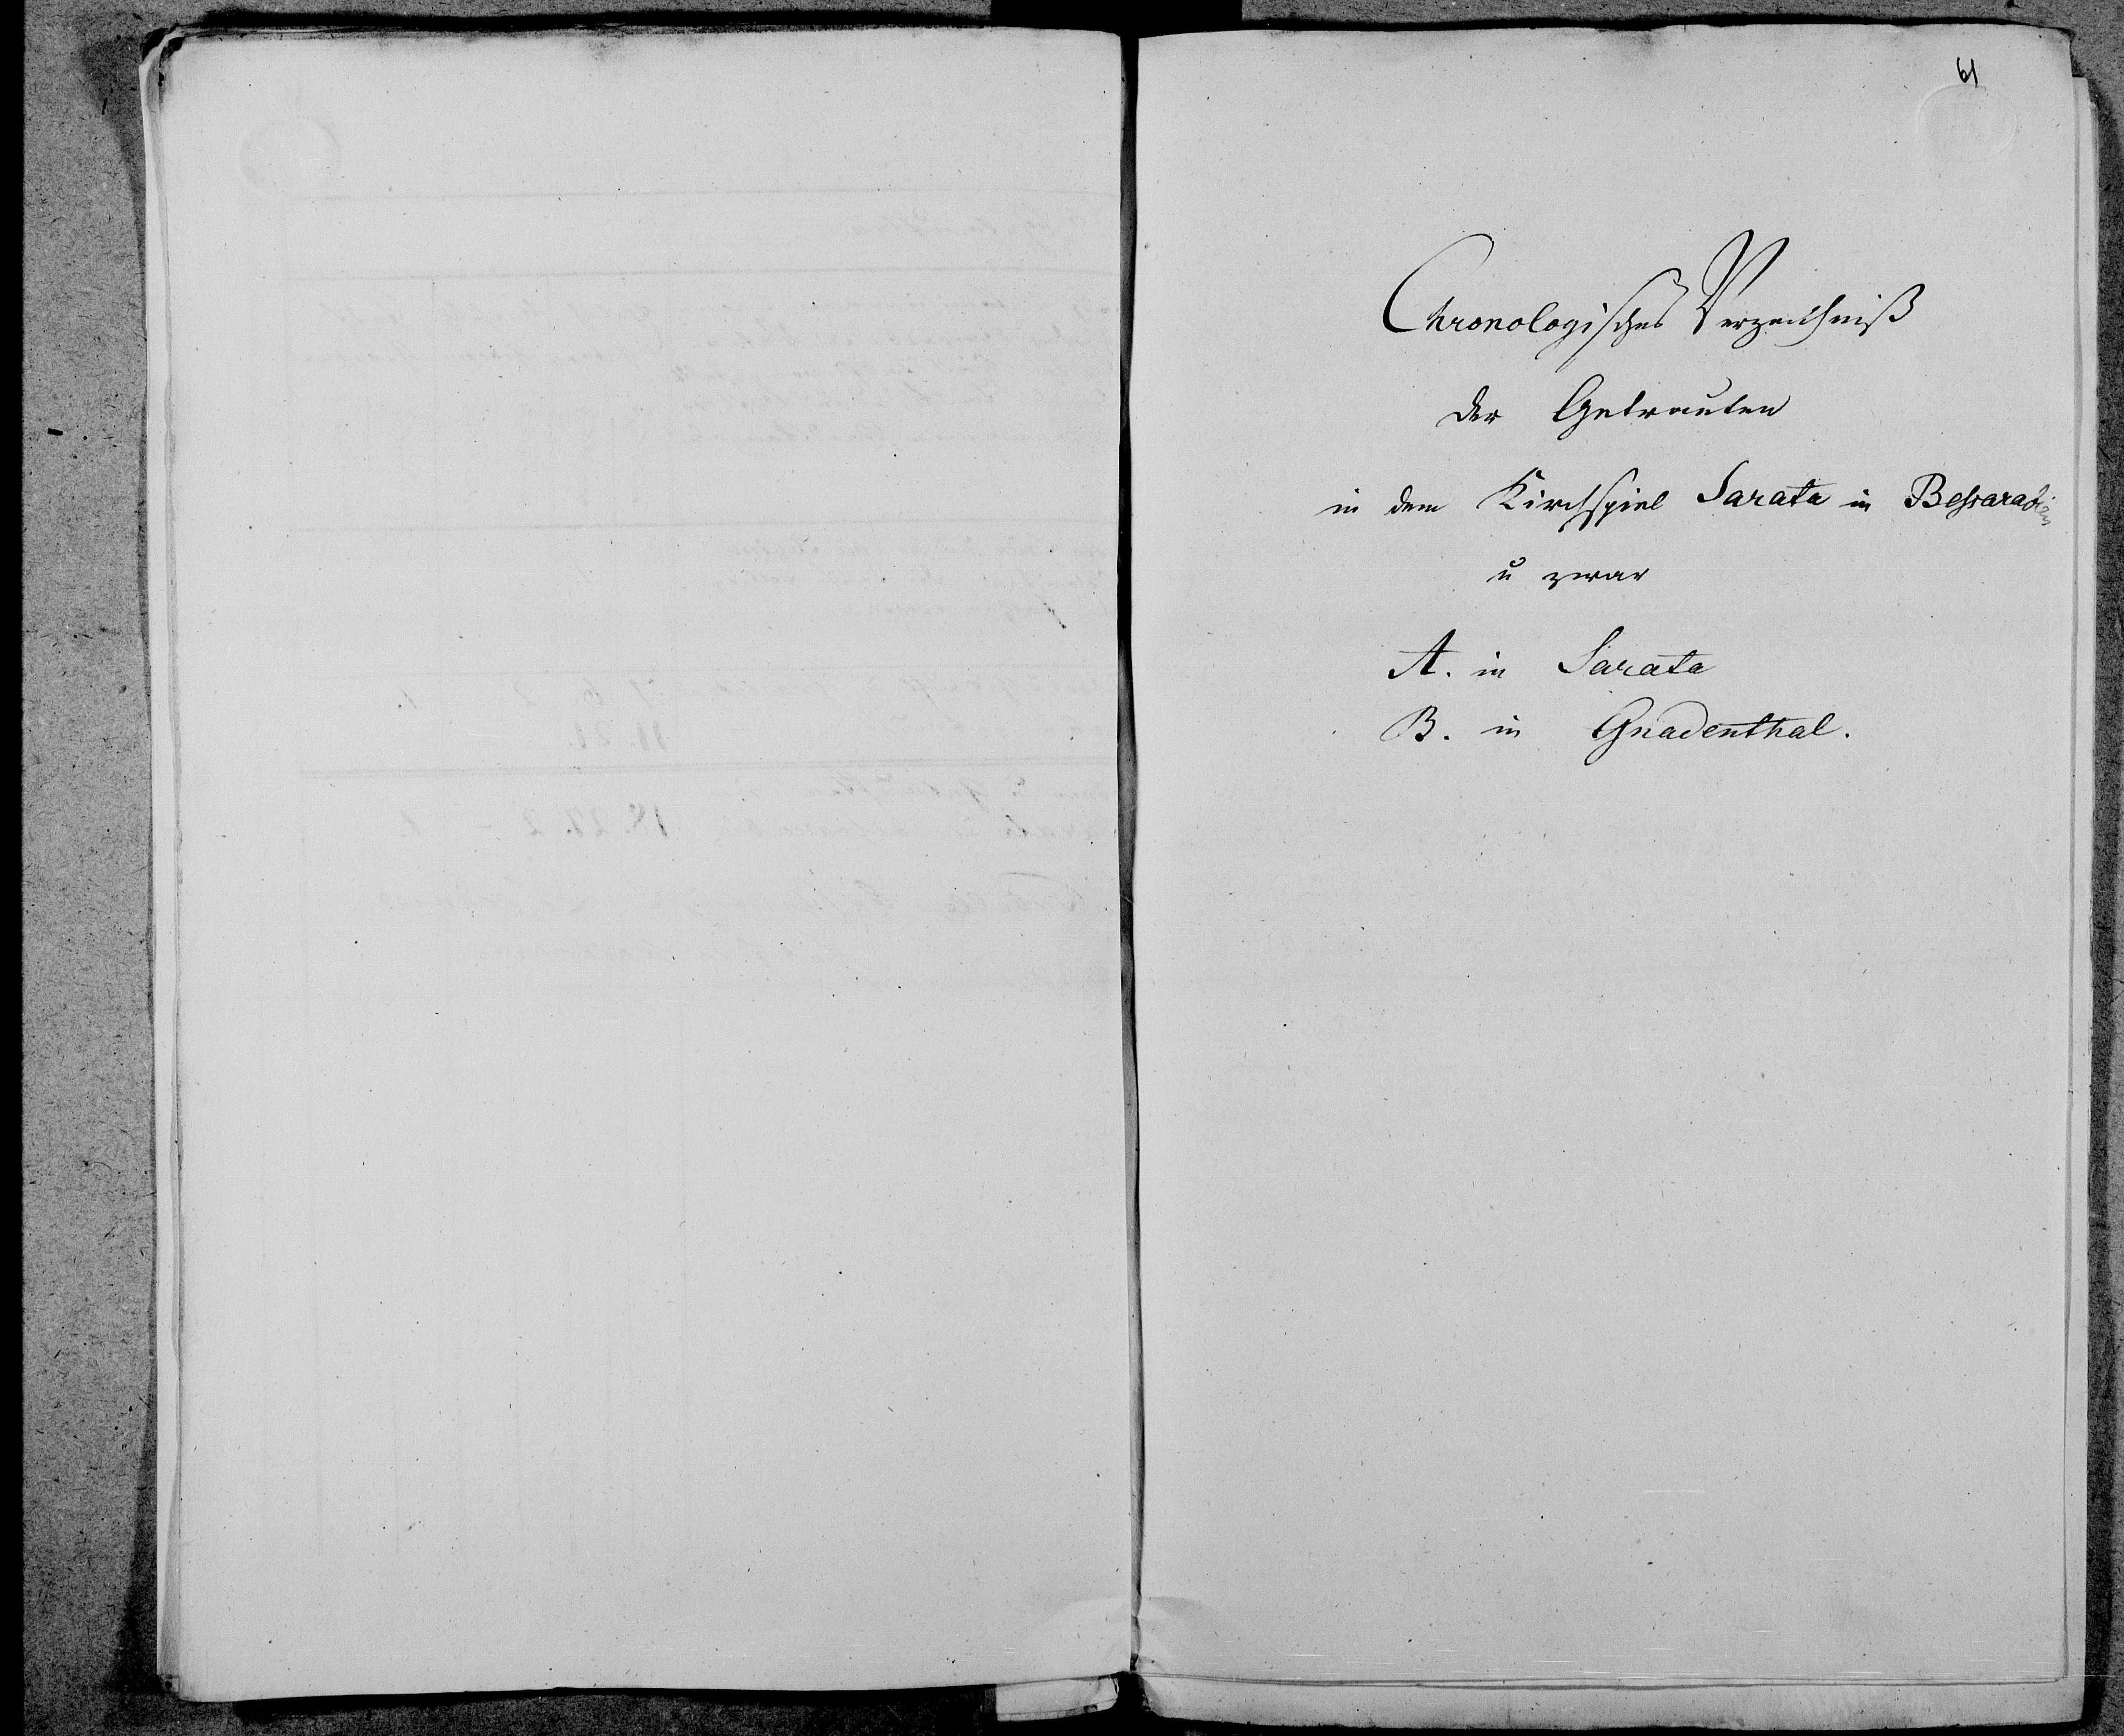 61
Chronologisches Verzeichniß
der Getrauten
in dem Kirchspiel Sarata in Bessarabien
u zwar
A. in Sarata
B. in Gnadenthal.